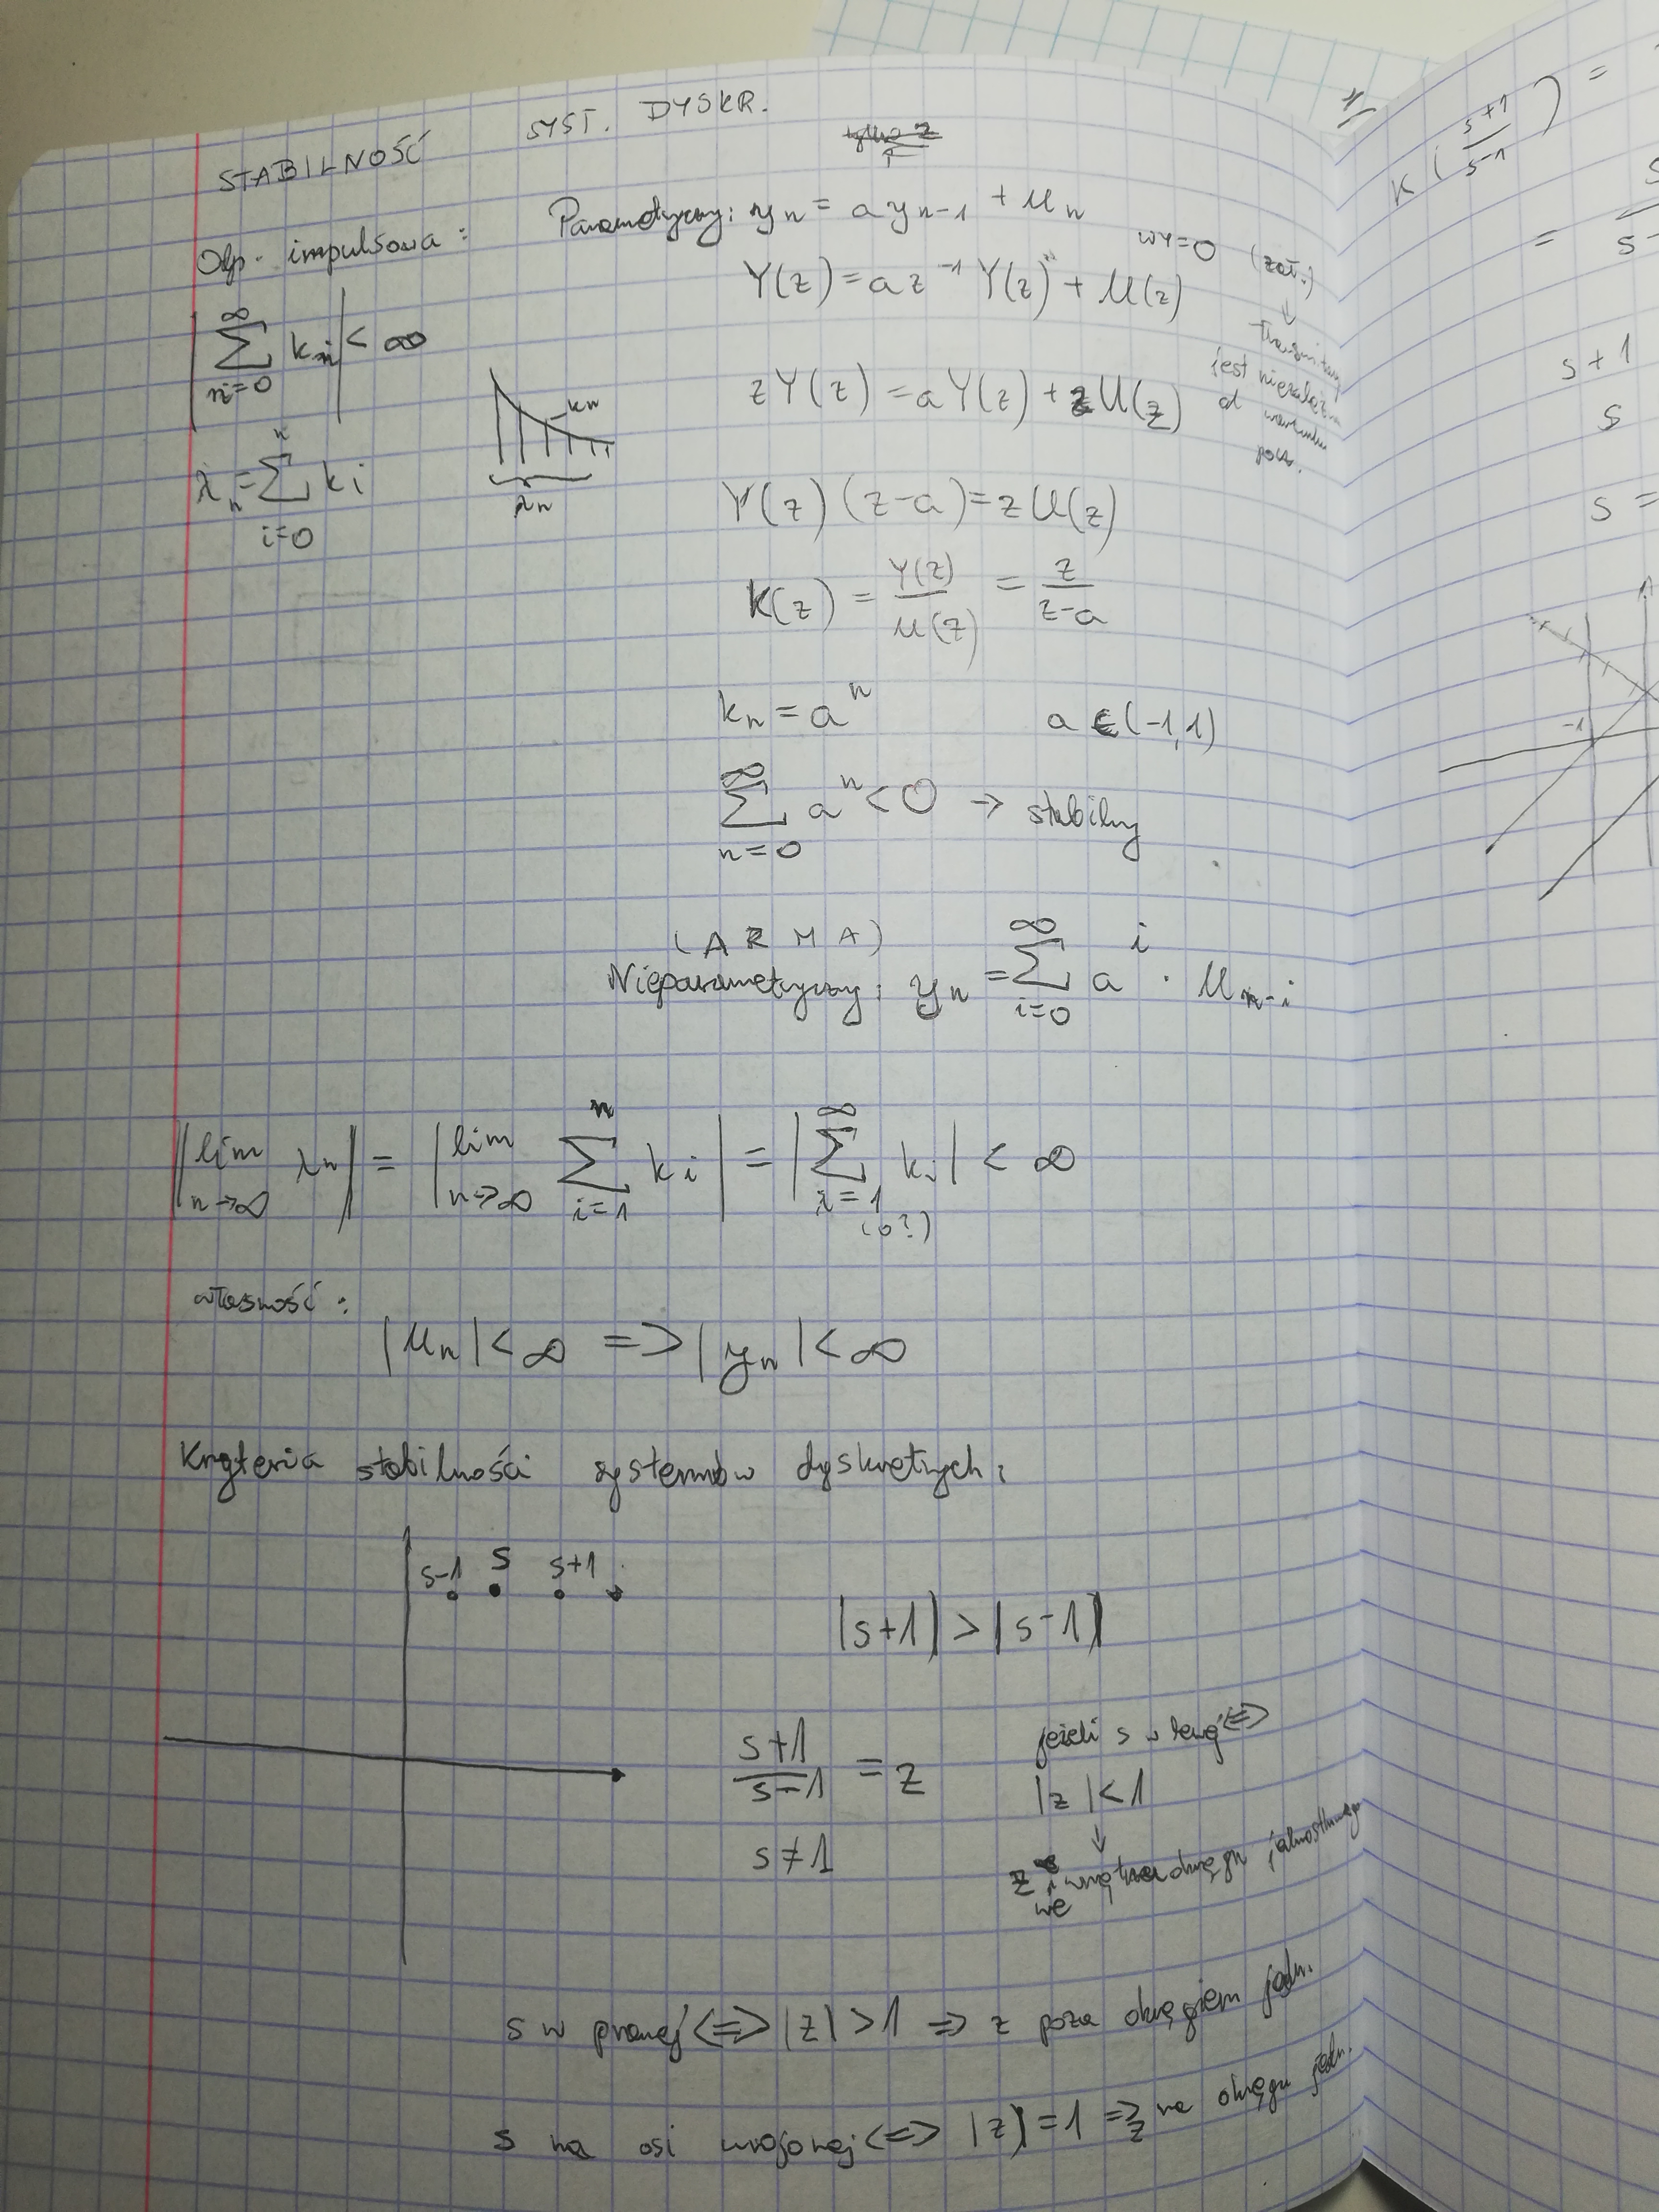 STABILNOŚĆ SYST. DYSKR.
1/
Odp. impulsowa:
|∑_{n=0}^{∞} k_n| < ∞
λ_n = ∑_{i=0}^{n} k_i
k_n
λ_n
Parametryczny: y_n = a y_{n-1} + u_n
wp=0 (zał.)
Y(z) = a z^{-1} Y(z) + U(z)
↓
jest niezależna
od warunków
pocz.
zY(z) = aY(z) + zU(z)
Y(z)(z-a) = zU(z)
K(z) = Y(z)/U(z) = z/(z-a)
k_n = a^n a ∈ (-1,1)
∑_{n=0}^{∞} a^n < 0 → stabilny
(ARMA)
Nieparametryczny: y_n = ∑_{i=0}^{∞} a^i · u_{n-i}
|lim_{n→∞} λ_n| = |lim_{n→∞} ∑_{i=1}^{n} k_i| = |∑_{i=1}^{∞} k_i| < ∞
(0?)
własność:
|u_n| < ∞ => |y_n| < ∞
Kryteria stabilności systemów dyskretnych:
s-1 s s+1
|s+1| > |s-1|
(s+1)/(s-1) = z
s ≠ 1
jeżeli s w lewej <=>
|z| < 1
↓
z we wnętrzu okręgu jednostkowego
s w prawej <=> |z| > 1 => z poza okręgiem jedn.
s na osi urojonej <=> |z| = 1 => z na okręgu jedn.
K((s+1)/(s-1)) =
=
s+1
s
s =
-1